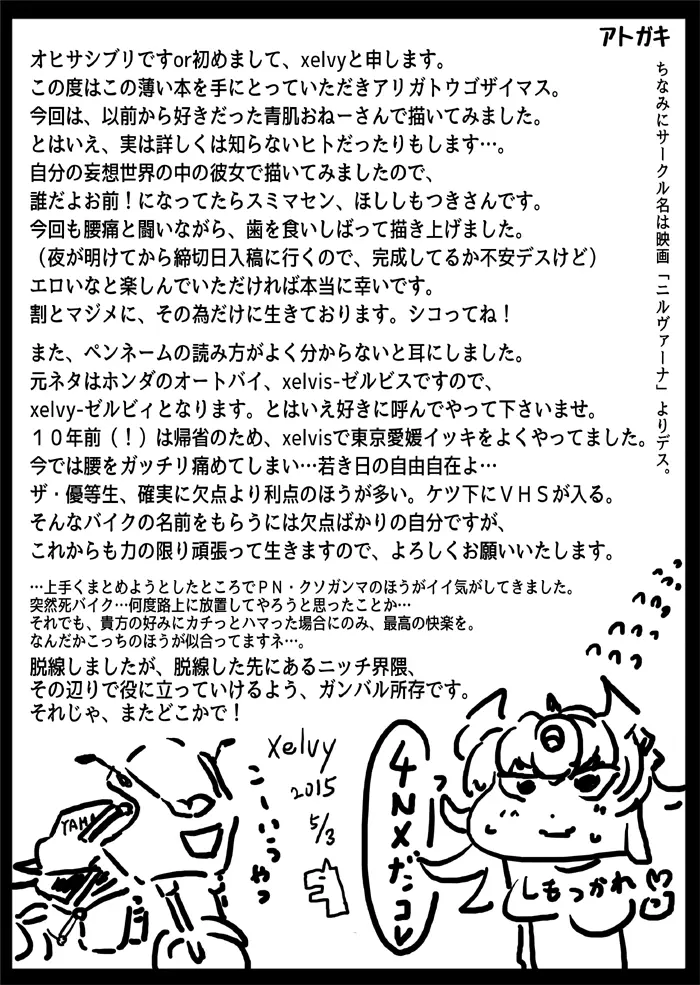 アトガキ
ちなみにサークル名は映画「ニルヴァーナ」よりデス。
オヒサシブリですor初めまして、xelvyと申します。
この度はこの薄い本を手にとっていただきアリガトウゴザイマス。
今回は、以前から好きだった青肌おねーさんで描いてみました。
とはいえ、実は詳しくは知らないヒトだったりもします…。
自分の妄想世界の中の彼女で描いてみましたので、
誰だよお前！になってたらスミマセン、ほししもつきさんです。
今回も腰痛と闘いながら、歯を食いしばって描き上げました。
（夜が明けてから締切日入稿に行くので、完成してるか不安デスけど）
エロいなと楽しんでいただければ本当に幸いです。
割とマジメに、その為だけに生きております。シコってね！
また、ペンネームの読み方がよく分からないと耳にしました。
元ネタはホンダのオートバイ、xelvis-ゼルビスですので、
xelvy-ゼルビィとなります。とはいえ好きに呼んでやって下さいませ。
１０年前（！）は帰省のため、xelvisで東京愛媛イッキをよくやってました。
今では腰をガッチリ痛めてしまい…若き日の自由自在よ…
ザ・優等生、確実に欠点より利点のほうが多い。ケツ下にＶＨＳが入る。
そんなバイクの名前をもらうには欠点ばかりの自分ですが、
これからも力の限り頑張って生きますので、よろしくお願いいたします。
…上手くまとめようとしたところでＰＮ・クソガンマのほうがイイ気がしてきました。
突然死バイク…何度路上に放置してやろうと思ったことか…
それでも、貴方の好みにカチっとハマった場合にのみ、最高の快楽を。
なんだかこっちのほうが似合ってますネ…。
脱線しましたが、脱線した先にあるニッチ界隈、
その辺りで役に立っていけるよう、ガンバル所存です。
それじゃ、またどこかで！
xelvy
2015
5/3
こーいうやつ
YAMA
4NXだコレ
しもつかれ